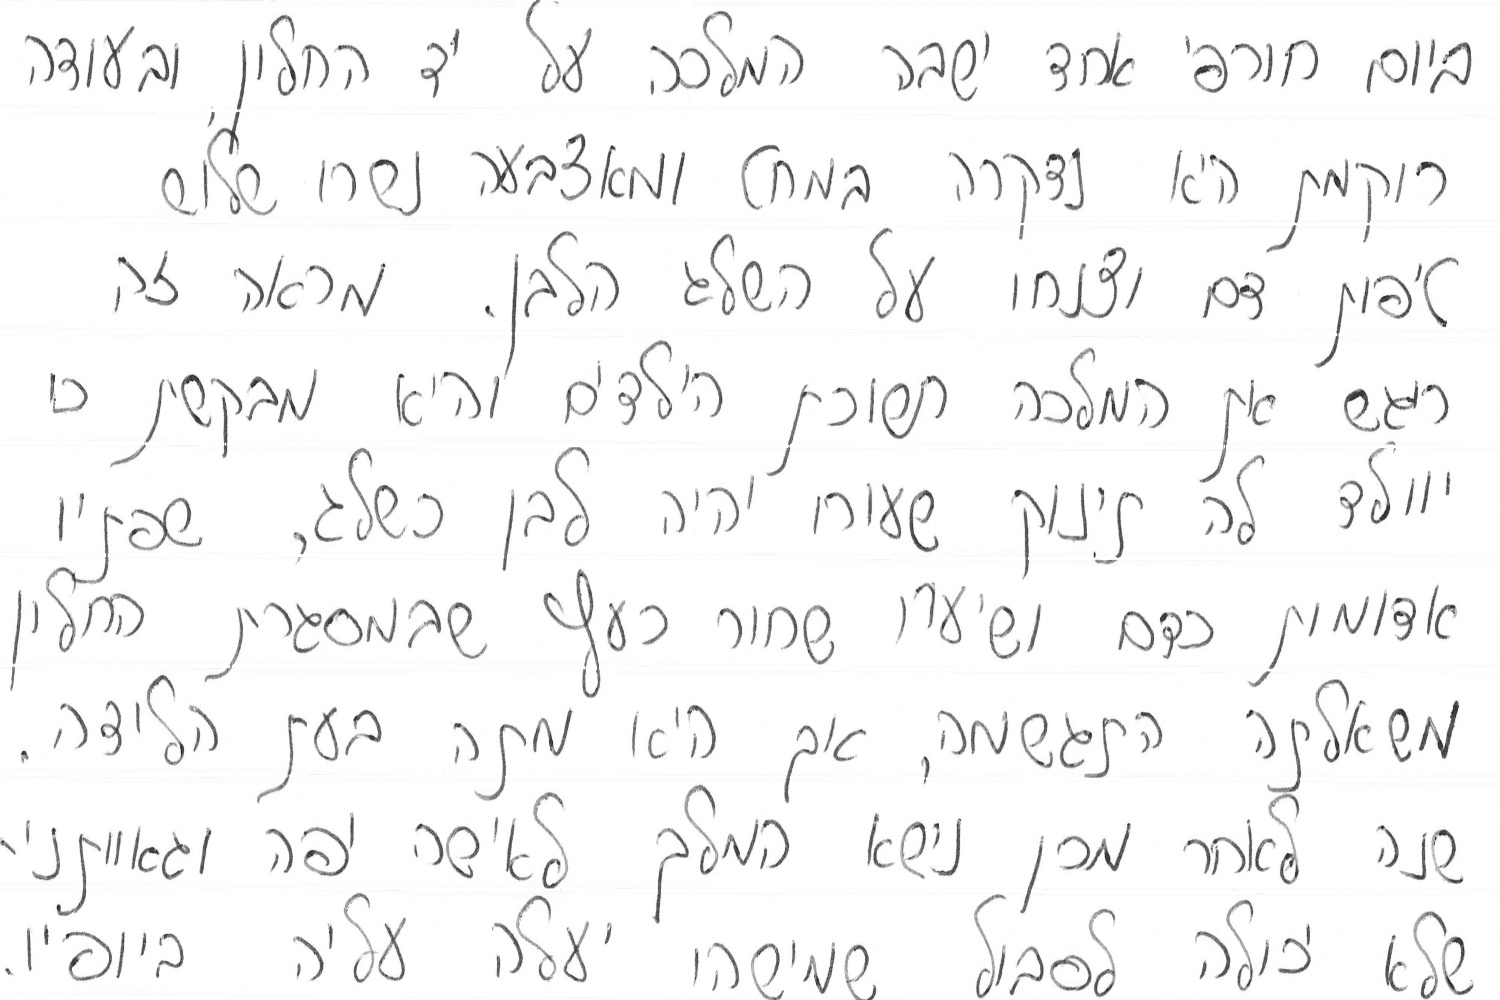 ביום חורפי אחד ישבה המלכה על יד החלון, ובעודה
רוקמת היא נדקרה במחט ומאצבעה נשרו שלוש
טיפות דם וצנחו על השלג הלבן. מראה זה
ריגש את המלכה חשוכת הילדים והיא מבקשת כי
יוולד לה תינוק שעורו יהיה לבן כשלג, שפתיו
אדומות כדם ושיערו שחור כעץ שבמסגרת החלון
משאלתה התגשמה, אך היא מתה בעת הלידה.
שנה לאחר מכן נישא המלך לאישה יפה וגאוותנית
שלא יכולה לסבול שמישהו יעלה עליה ביופיו.